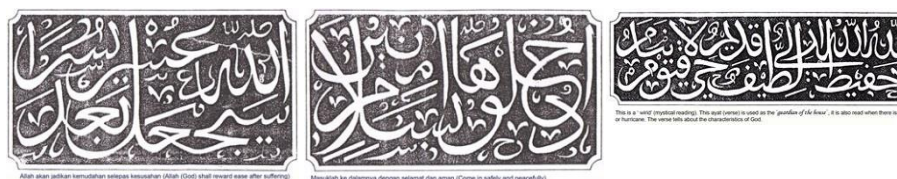 سيجعل الله بعد عسر يسرا
Allah akan jadikan kemudahan selepas kesusahan (Allah (God) shall reward ease after suffering)
ادخلوها بسلام آمنين
Masuklah ke dalamnya dengan selamat dan aman (Come in safely and peacefully)
حفيظ لطيف حي قيوم لا ينام
This is a ' wirid' (mystical reading). This ayat (verse) is used as the 'guardian of the house', it is also read when there is
or hurricane. The verse tells about the characteristics of God.